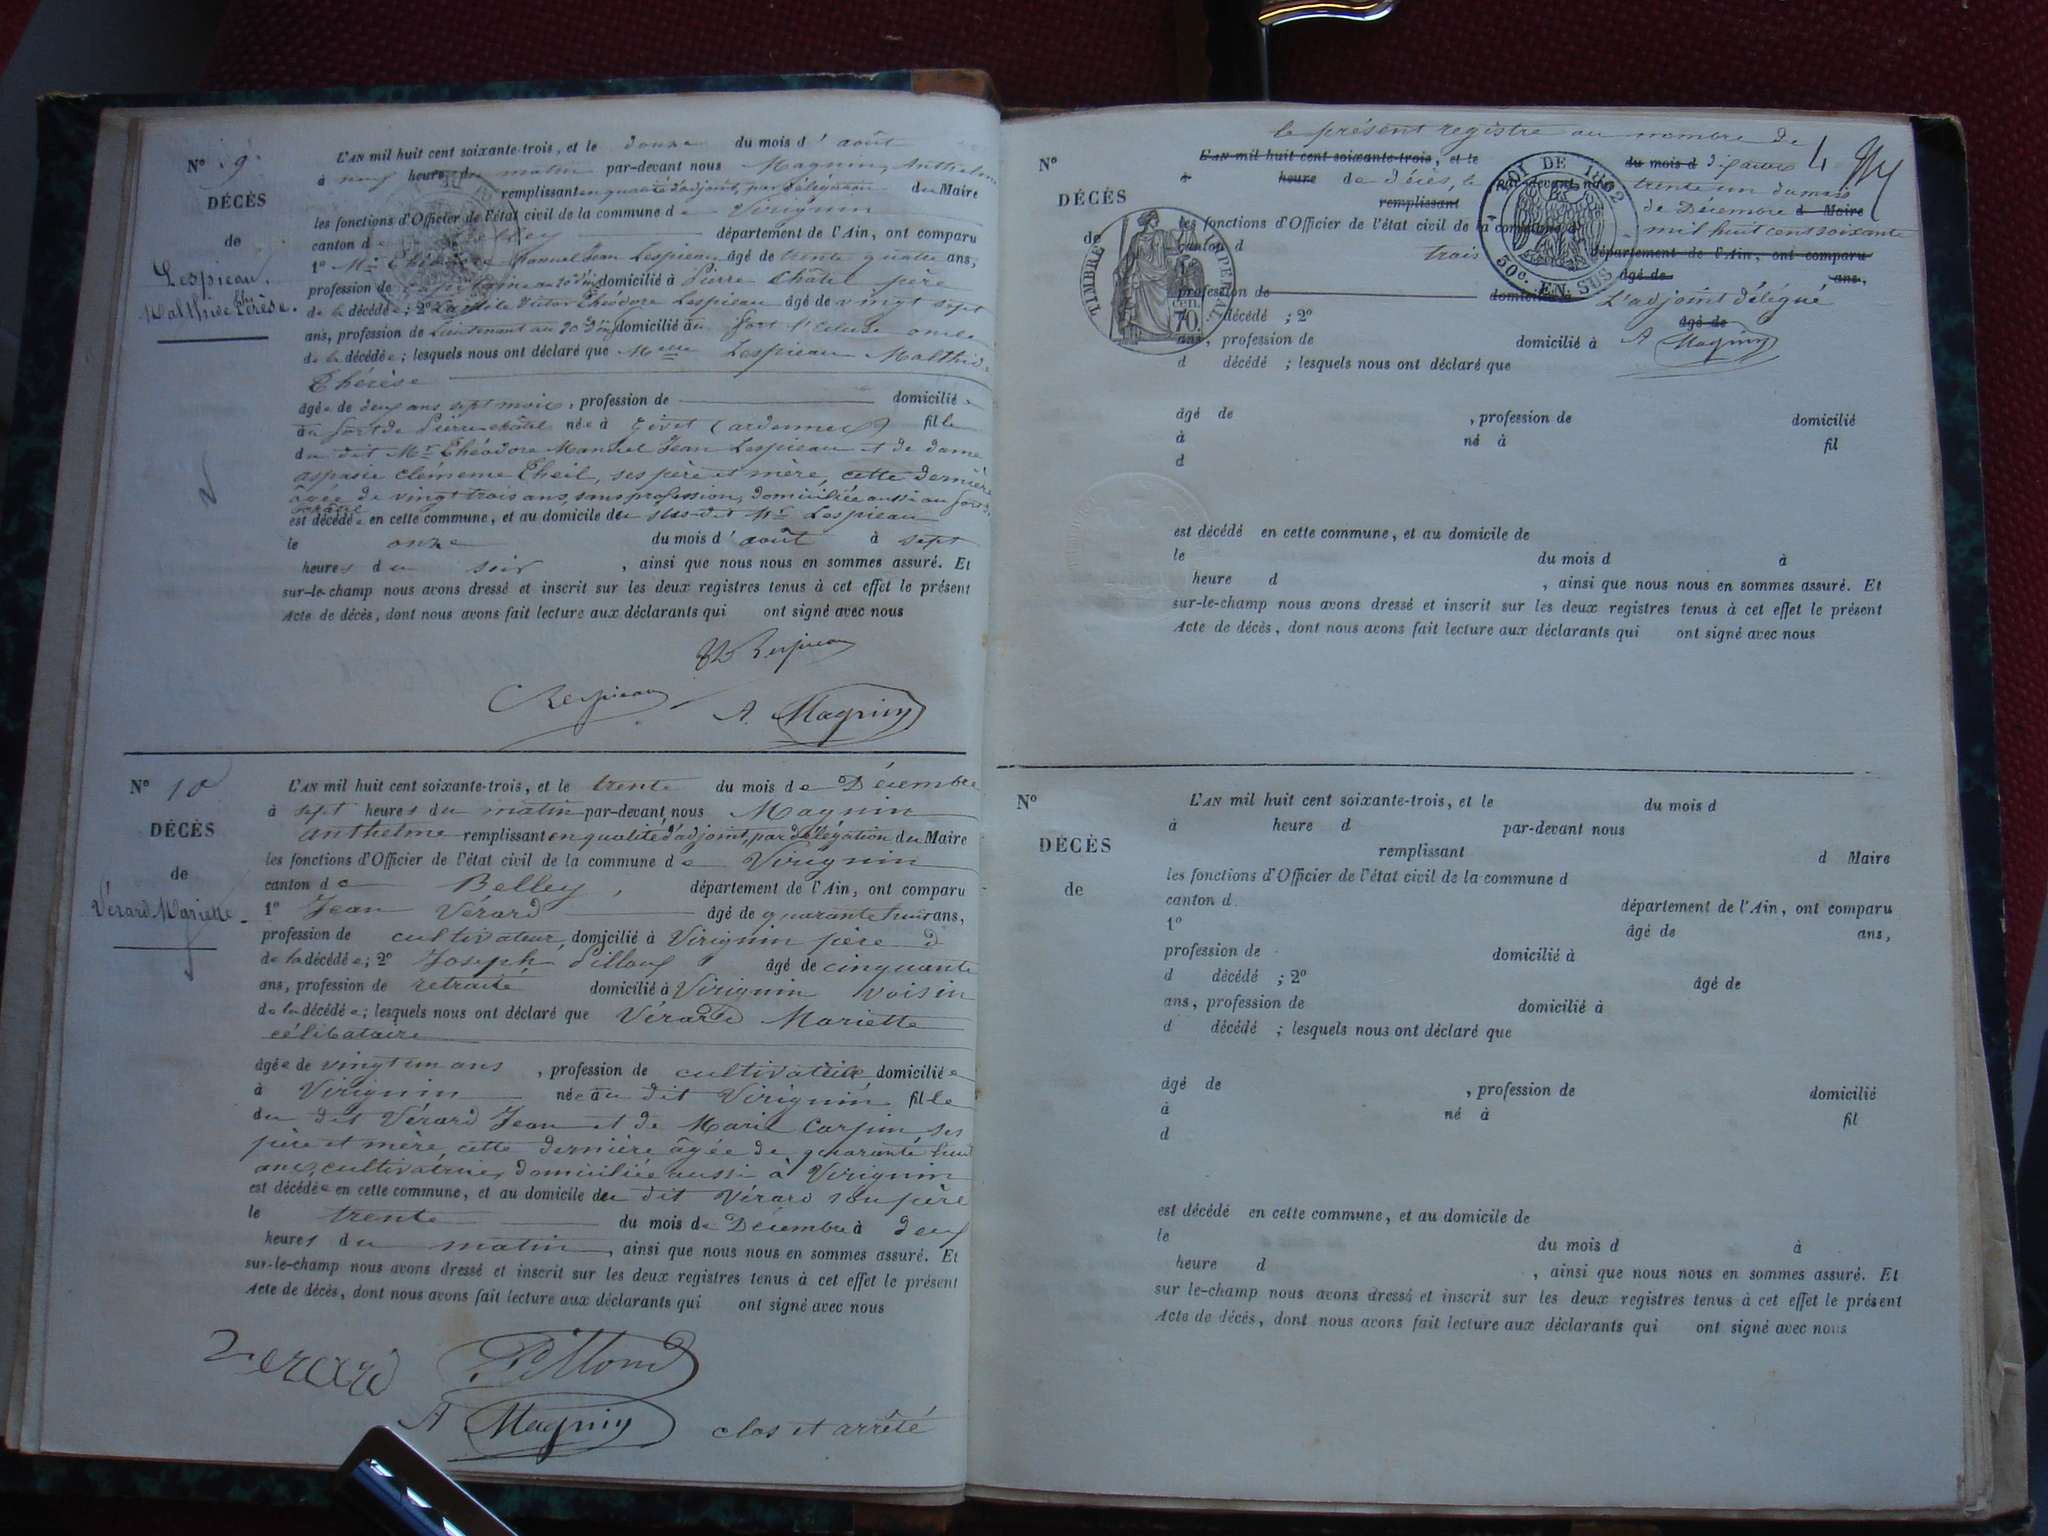 N° 9
DÉCÈS
de
Lespieau
Malthide Thérèse.
L'AN mil huit cent soixante-trois, et le douze du mois d'août
à neuf heures du matin par-devant nous Magnin Anthelme
remplissant en qualité d'adjoint, par délégation du Maire
les fonctions d'Officier de l'état civil de la commune de Virignin
canton de Belley département de l'Ain, ont comparu
1° Mr Théodore Manuel Jean Lespieau âgé de trente quatre ans,
profession de capitaine au 20e domicilié à Pierre Châtel père
de la décédée ; 2° Victor Théodore Lespieau âgé de vingt sept
ans, profession de Lieutenant au 20e domicilié au fort l'Ecluse oncle
de la décédée ; lesquels nous ont déclaré que Melle Lespieau Malthide
Thérèse
âgée de deux ans sept mois, profession de domiciliée
au fort de Pierre-châtel née à Givet (ardennes) fille
du dit Mr Théodore Manuel Jean Lespieau et de dame
aspasie clémence Theil, ses père et mère, cette dernière
âgée de vingt trois ans, sans profession, domiciliée aussi au fort
est décédée en cette commune, et au domicile du sus-dit Mr Lespieau
le onze du mois d'août à sept
heures du soir, ainsi que nous nous en sommes assuré. Et
sur-le-champ nous avons dressé et inscrit sur les deux registres tenus à cet effet le présent
Acte de décès, dont nous avons fait lecture aux déclarants qui ont signé avec nous
Lespieau
Lespieau
A. Magnin
N° 10
DÉCÈS
de
Vérard Mariette
L'AN mil huit cent soixante-trois, et le trente du mois de Décembre
à sept heures du matin par-devant nous Magnin
anthelme remplissant en qualité d'adjoint, par délégation du Maire
les fonctions d'Officier de l'état civil de la commune de Virignin
canton de Belley, département de l'Ain, ont comparu
1° Jean Vérard âgé de quarante huit ans,
profession de cultivateur domicilié à Virignin père
de la décédée ; 2° Joseph Pilloud âgé de cinquante
ans, profession de retraité domicilié à Virignin voisin
de la décédée ; lesquels nous ont déclaré que Vérard Mariette
célibataire
âgée de vingt un ans, profession de cultivatrice domiciliée
à Virignin née au dit Virignin fille
du dit Vérard Jean et de Marie Carpin ses
père et mère, cette dernière âgée de quarante huit
ans, cultivatrice, domiciliée aussi à Virignin
est décédée en cette commune, et au domicile du dit Vérard son père
le trente du mois de Décembre à deux
heures du matin, ainsi que nous nous en sommes assuré. Et
sur-le-champ nous avons dressé et inscrit sur les deux registres tenus à cet effet le présent
Acte de décès, dont nous avons fait lecture aux déclarants qui ont signé avec nous
Verard Pilloud
A Magnin clos et arrêté
le présent registre au nombre de
N° L'AN mil huit cent soixante-trois, et le du mois d dix actes 4
à heure de décès, le par-devant nous trente un du mois
DÉCÈS remplissant de Décembre d Maire
de les fonctions d'Officier de l'état civil de la commune d mil huit cent soixante
canton d trois département de l'Ain, ont comparu
1° âgé de ans,
profession de domicilié à L'adjoint délégué
d décédé ; 2° âgé de
ans, profession de domicilié à A Magnin
d décédé ; lesquels nous ont déclaré que
LOI DE 1862
50c. EN SUS
TIMBRE IMPERIAL
cen. 70.
âgé de , profession de domicilié
à né à fil
d
est décédé en cette commune, et au domicile de
le du mois d à
heure d , ainsi que nous nous en sommes assuré. Et
sur-le-champ nous avons dressé et inscrit sur les deux registres tenus à cet effet le présent
Acte de décès, dont nous avons fait lecture aux déclarants qui ont signé avec nous
N°
DÉCÈS
de
L'AN mil huit cent soixante-trois, et le du mois d
à heure d par-devant nous
remplissant d Maire
les fonctions d'Officier de l'état civil de la commune d
canton d département de l'Ain, ont comparu
1° âgé de ans,
profession de domicilié à
d décédé ; 2° âgé de
ans, profession de domicilié à
d décédé ; lesquels nous ont déclaré que
âgé de , profession de domicilié
à né à fil
d
est décédé en cette commune, et au domicile de
le du mois d à
heure d , ainsi que nous nous en sommes assuré. Et
sur le-champ nous avons dressé et inscrit sur les deux registres tenus à cet effet le présent
Acte de décès, dont nous avons fait lecture aux déclarants qui ont signé avec nous